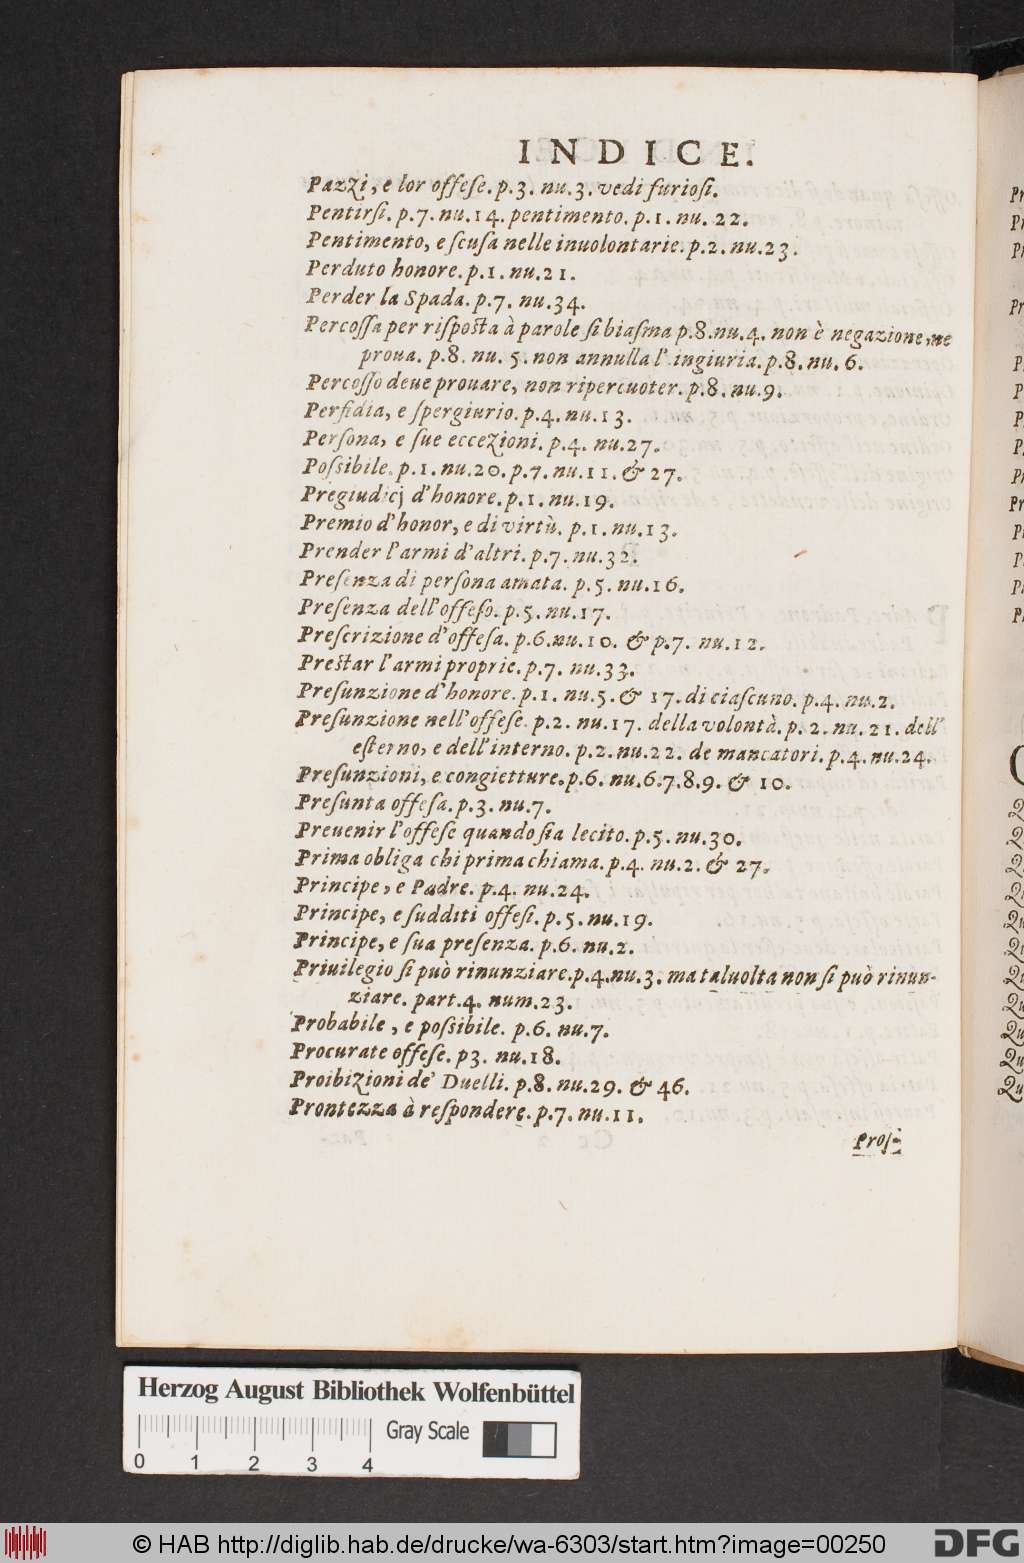 INDICE.
Pazzi, e lor offeſe. p.3. nu.3. vedi furioſi.
Pentirſi. p.7. nu.14. pentimento. p.1. nu. 22.
Pentimento, e ſcuſa nelle inuolontarie. p.2. nu.23.
Perduto honore. p.1. nu.21.
Perder la Spada. p.7. nu.34.
Percoſſa per riſpoſta à parole ſi biaſma p.8. nu.4. non è negazione, ne
proua. p.8. nu. 5. non annulla l'ingiuria. p.8. nu. 6.
Percoſſo deue prouare, non ripercuoter. p.8. nu.9.
Perfidia, e ſpergiurio. p.4. nu.13.
Perſona, e ſue eccezioni. p.4. nu.27.
Poſsibile. p.1. nu.20. p.7. nu.11. & 27.
Pregiudicj d'honore. p.1. nu.19.
Premio d'honor, e di virtù. p.1. nu.13.
Prender l'armi d'altri. p.7. nu.32.
Preſenza di perſona amata. p.5. nu.16.
Preſenza dell'offeſo. p.5. nu.17.
Preſcrizione d'offeſa. p.6. nu.10. & p.7. nu.12.
Preſtar l'armi proprie. p.7. nu.33.
Preſunzione d'honore. p.1. nu.5. & 17. di ciaſcuno. p.4. nu.2.
Preſunzione nell'offeſe. p.2. nu.17. della volontà. p.2. nu.21. dell'
eſterno, e dell'interno. p.2. nu.22. de mancatori. p.4. nu.24.
Preſunzioni, e congietture. p.6. nu.6.7.8.9. & 10.
Preſunta offeſa. p.3. nu.7.
Preuenir l'offeſe quando ſia lecito. p.5. nu.30.
Prima obliga chi prima chiama. p.4. nu.2. & 27.
Principe, e Padre. p.4. nu.24.
Principe, e ſudditi offeſi. p.5. nu.19.
Principe, e ſua preſenza. p.6. nu.2.
Priuilegio ſi può rinunziare. p.4. nu.3. ma taluolta non ſi può rinun-
ziare. part.4. num.23.
Probabile, e poſsibile. p.6. nu.7.
Procurate offeſe. p3. nu.18.
Proibizioni de' Duelli. p.8. nu.29. & 46.
Prontezza à reſpondere. p.7. nu.11.
Proſ-
Herzog August Bibliothek Wolfenbüttel
Gray Scale
0 1 2 3 4
© HAB http://diglib.hab.de/drucke/wa-6303/start.htm?image=00250
DFG